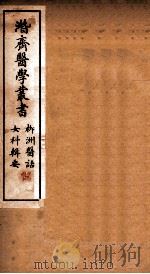 潛齋醫學叢書
柳洲醫話
女科輯要